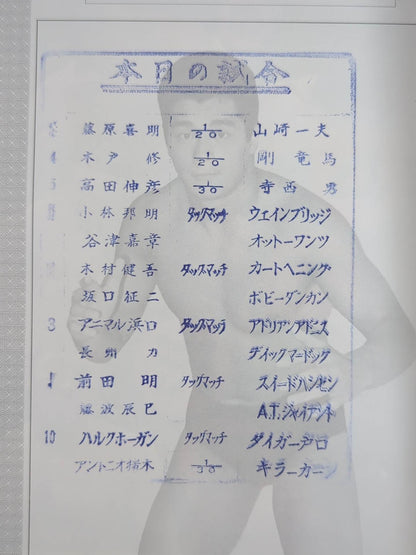 本日の試合
藤原喜明 1/20 山崎一夫
4 木戸修 1/20 剛竜馬
5 高田伸彦 1/30 寺西勇
小林邦明 タッグマッチ ウェインブリッジ
谷津嘉章 オットーワンツ
木村健吾 タッグマッチ カートヘニング
坂口征二 ボビーダンカン
8 アニマル浜口 タッグマッチ アドリアンアドニス
長州力 ディックマードック
前田明 タッグマッチ スイードハンセン
藤波辰巳 A.T.ジャイアント
10 ハルクホーガン タッグマッチ タイガー戸口
アントニオ猪木 1/30 キラーカーン